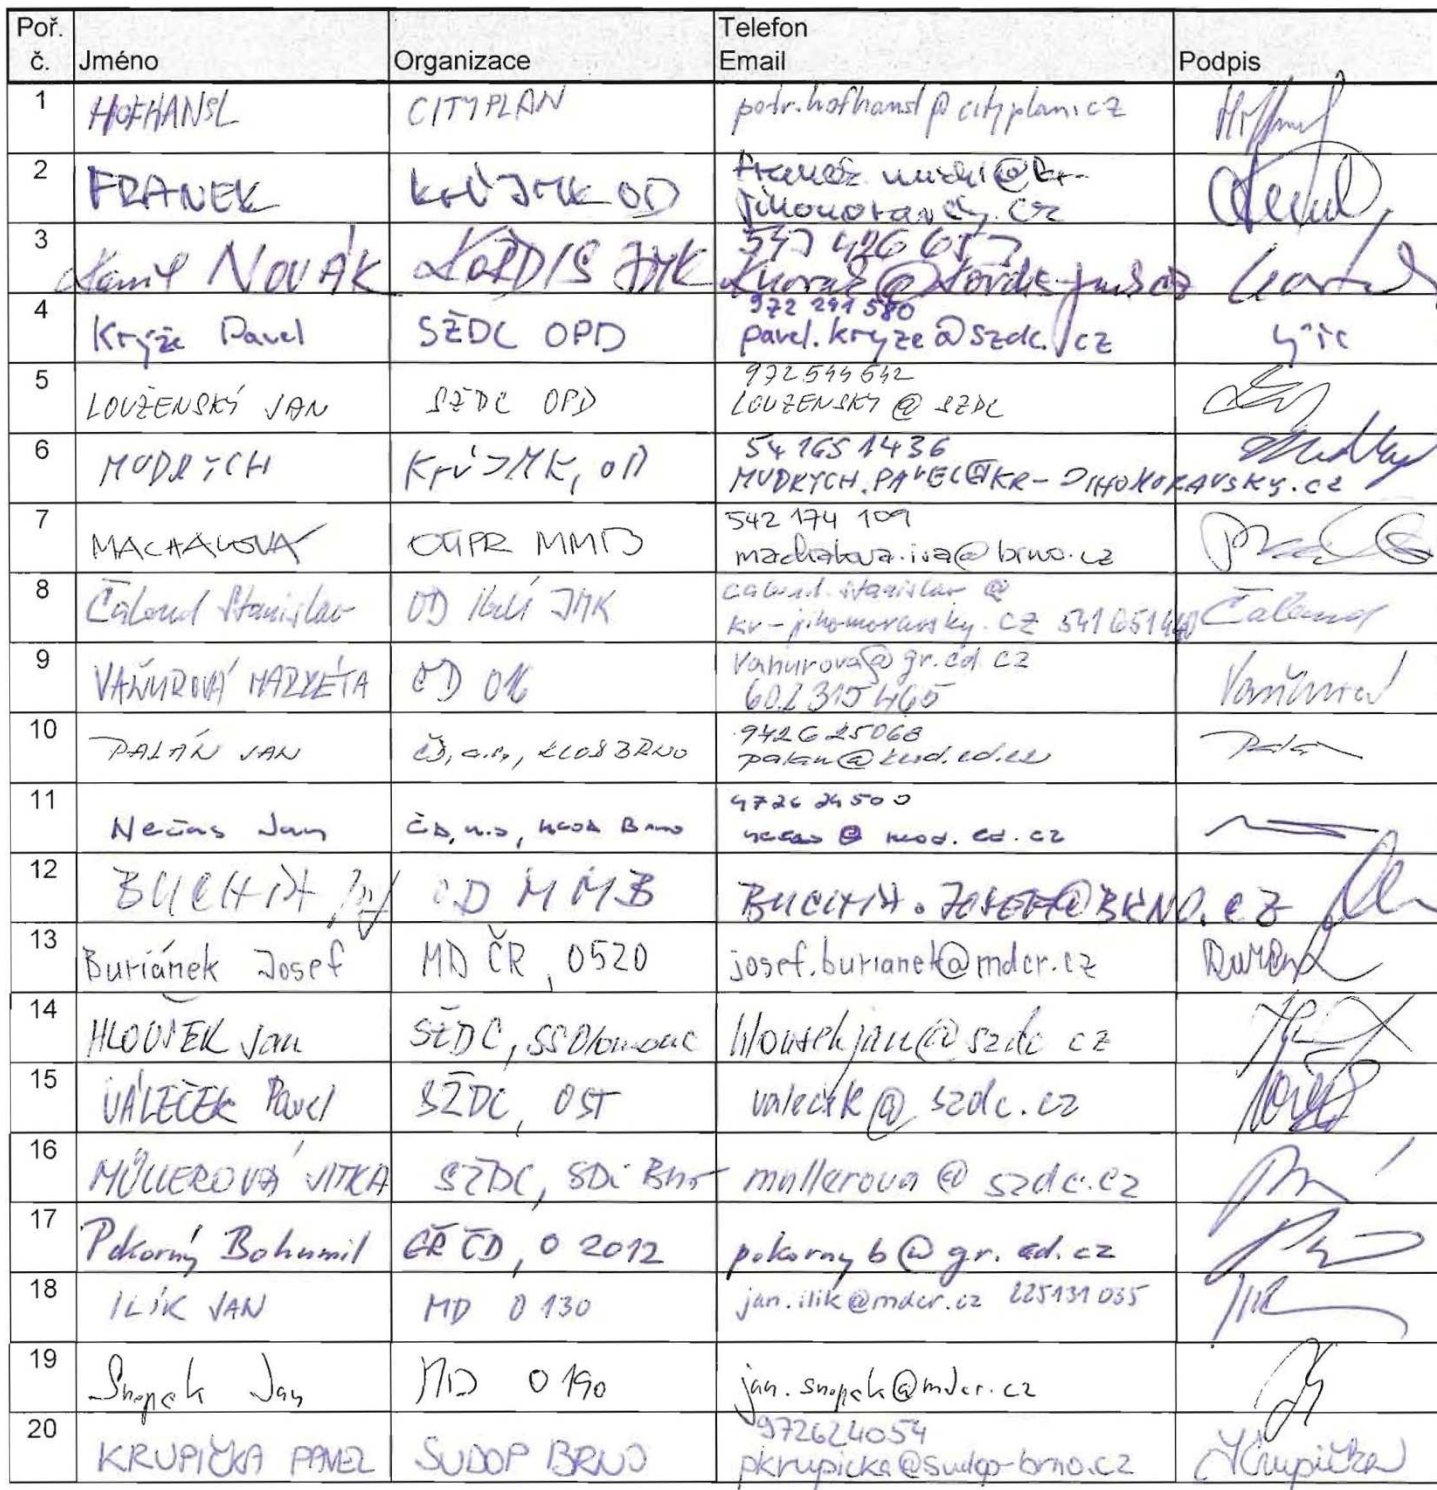 Poř. č. Jméno Organizace Telefon Email Podpis
1 HOFHANSL CITYPLAN petr.hofhansl@cityplan.cz
2 FRANEK KrÚ JMK OD
jihomoravsky.cz
3 Kamil NOVÁK KORDIS JMK 547 426 657
4 Kryže Pavel SŽDC OPD 972 241 580
pavel.kryze@szdc.cz
5 LOUŽENSKÝ JAN SŽDC OPD 972544642
LOUZENSKY @ SZDC
6 MUDRYCH KrÚ JMK, OD 541651436
MUDRYCH.PAVEL@KR-JIHOMORAVSKY.CZ
7 MACHALOVÁ OÚPR MMB 542 174 109
machalova.iva@brno.cz
8 Čaloud Stanislav OD JMK caloud.stanislav @
kr-jihomoravsky.cz 541651440 Čaloud
9 VAŇUROVÁ MARKÉTA ČD O16 vanurova@gr.cd.cz
602315465
10 PALÁN JAN ČD, a.s., BRNO 9426 25068
11 Nečas Jan ČD, a.s., Brno 9726 24500
12 BUCHTA OD MMB BUCHTA.JOSEF@BRNO.CZ
13 Buriánek Josef MD ČR, 0520 josef.burianek@mdcr.cz
14 HLOUŠEK Jan SŽDC, SS Olomouc hlousekjan@szdc cz
15 VÁLEČEK Pavel SŽDC, OST valecek@szdc.cz
16 MÜLLEROVÁ JITKA SŽDC, SDC Brno mullerova @ szdc.cz
17 Pokorný Bohumil GŘ ČD, O 2012 pokorny b@gr.cd.cz
18 ILÍK JAN MD 0130 jan.ilik@mdcr.cz 225131035
19 Snopek Jan MD 0190 jan.snopek@mdcr.cz
20 KRUPIČKA PAVEL SUDOP BRNO 972624054
pkrupicka@sudop-brno.cz Krupička